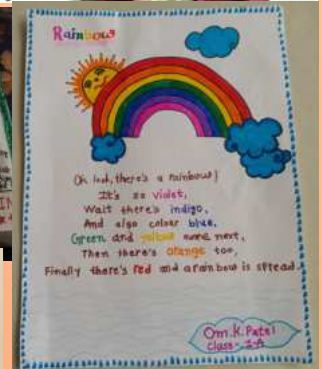 Rainbow
Oh look, there's a rainbow!
It's so violet,
Wait there's indigo,
And also colour blue.
Green and yellow come next,
Then there's orange too,
Finally there's red and a rainbow is spread.
Om.K.Patel
Class-